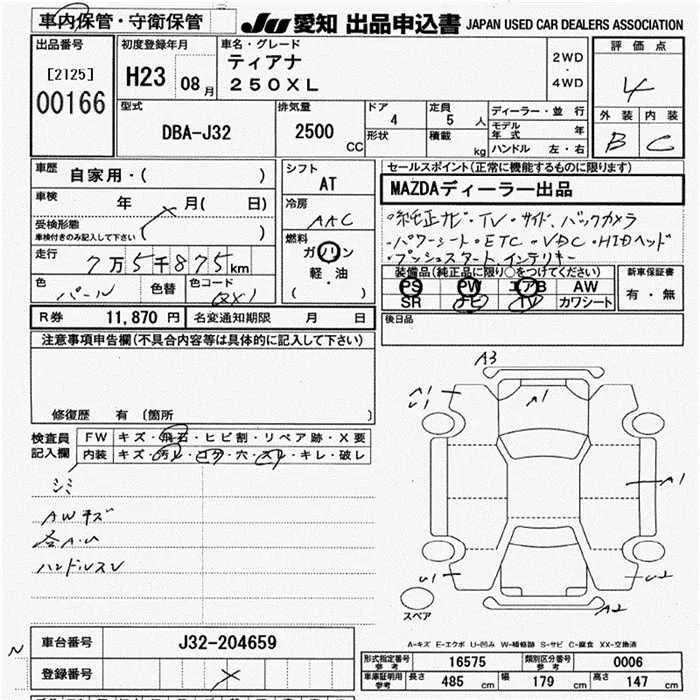 車内保管・守衛保管 JU 愛知 出品申込書 JAPAN USED CAR DEALERS ASSOCIATION
出品番号 [2125] 00166
初度登録年月 H23 08月
車名・グレード ティアナ 250XL 2WD・4WD
評価点 4
外装 B 内装 C
型式 DBA-J32
排気量 2500 CC
ドア 4 形状
定員 5人 積載 kg
ディーラー・並行
モデル年式 年
ハンドル 左・右
車歴 自家用・( )
車検 年 月( 日)
受検形態
車検付きのみ記入して下さい ( )
走行 7万5千875km
色 パール 色替 色コード QX1
シフト AT
冷房 AAC
燃料 ガソリン 軽・油 ( )
セールスポイント(正常に機能するものに限ります)
MAZDAディーラー出品
・純正ナビ・TV・サイド、バックカメラ
・パワーシート・ETC・VDC・HIDヘッド
・プッシュスタート、インテリキー
装備品(純正品に限り○をつけてください)
PS PW エアB AW
SR ナビ TV カワシート
新車保証書 有・無
R券 11,870 円 名変通知期限 月 日
後日品
注意事項申告欄(不具合内容等は具体的に記入して下さい)
修復歴 有 (箇所 )
検査員記入欄
FW キズ・飛石・ヒビ割・リペア跡・X要
内装 キズ・汚レ・コゲ・穴・スレ・キレ・破レ
シミ
AWキズ
各A.U
ハンドルスレ
A3
A1
U1
A1
A1
U1
U2
A2
スペア
A-キズ E-エクボ U-凹み W-補修跡 S-サビ C-腐食 XX-交換済
N
車台番号 J32-204659
登録番号
形式指定番号 参考 16575 類別区分番号 参考 0006
車庫証明用 参考 長さ 485 cm 幅 179 cm 高さ 147 cm